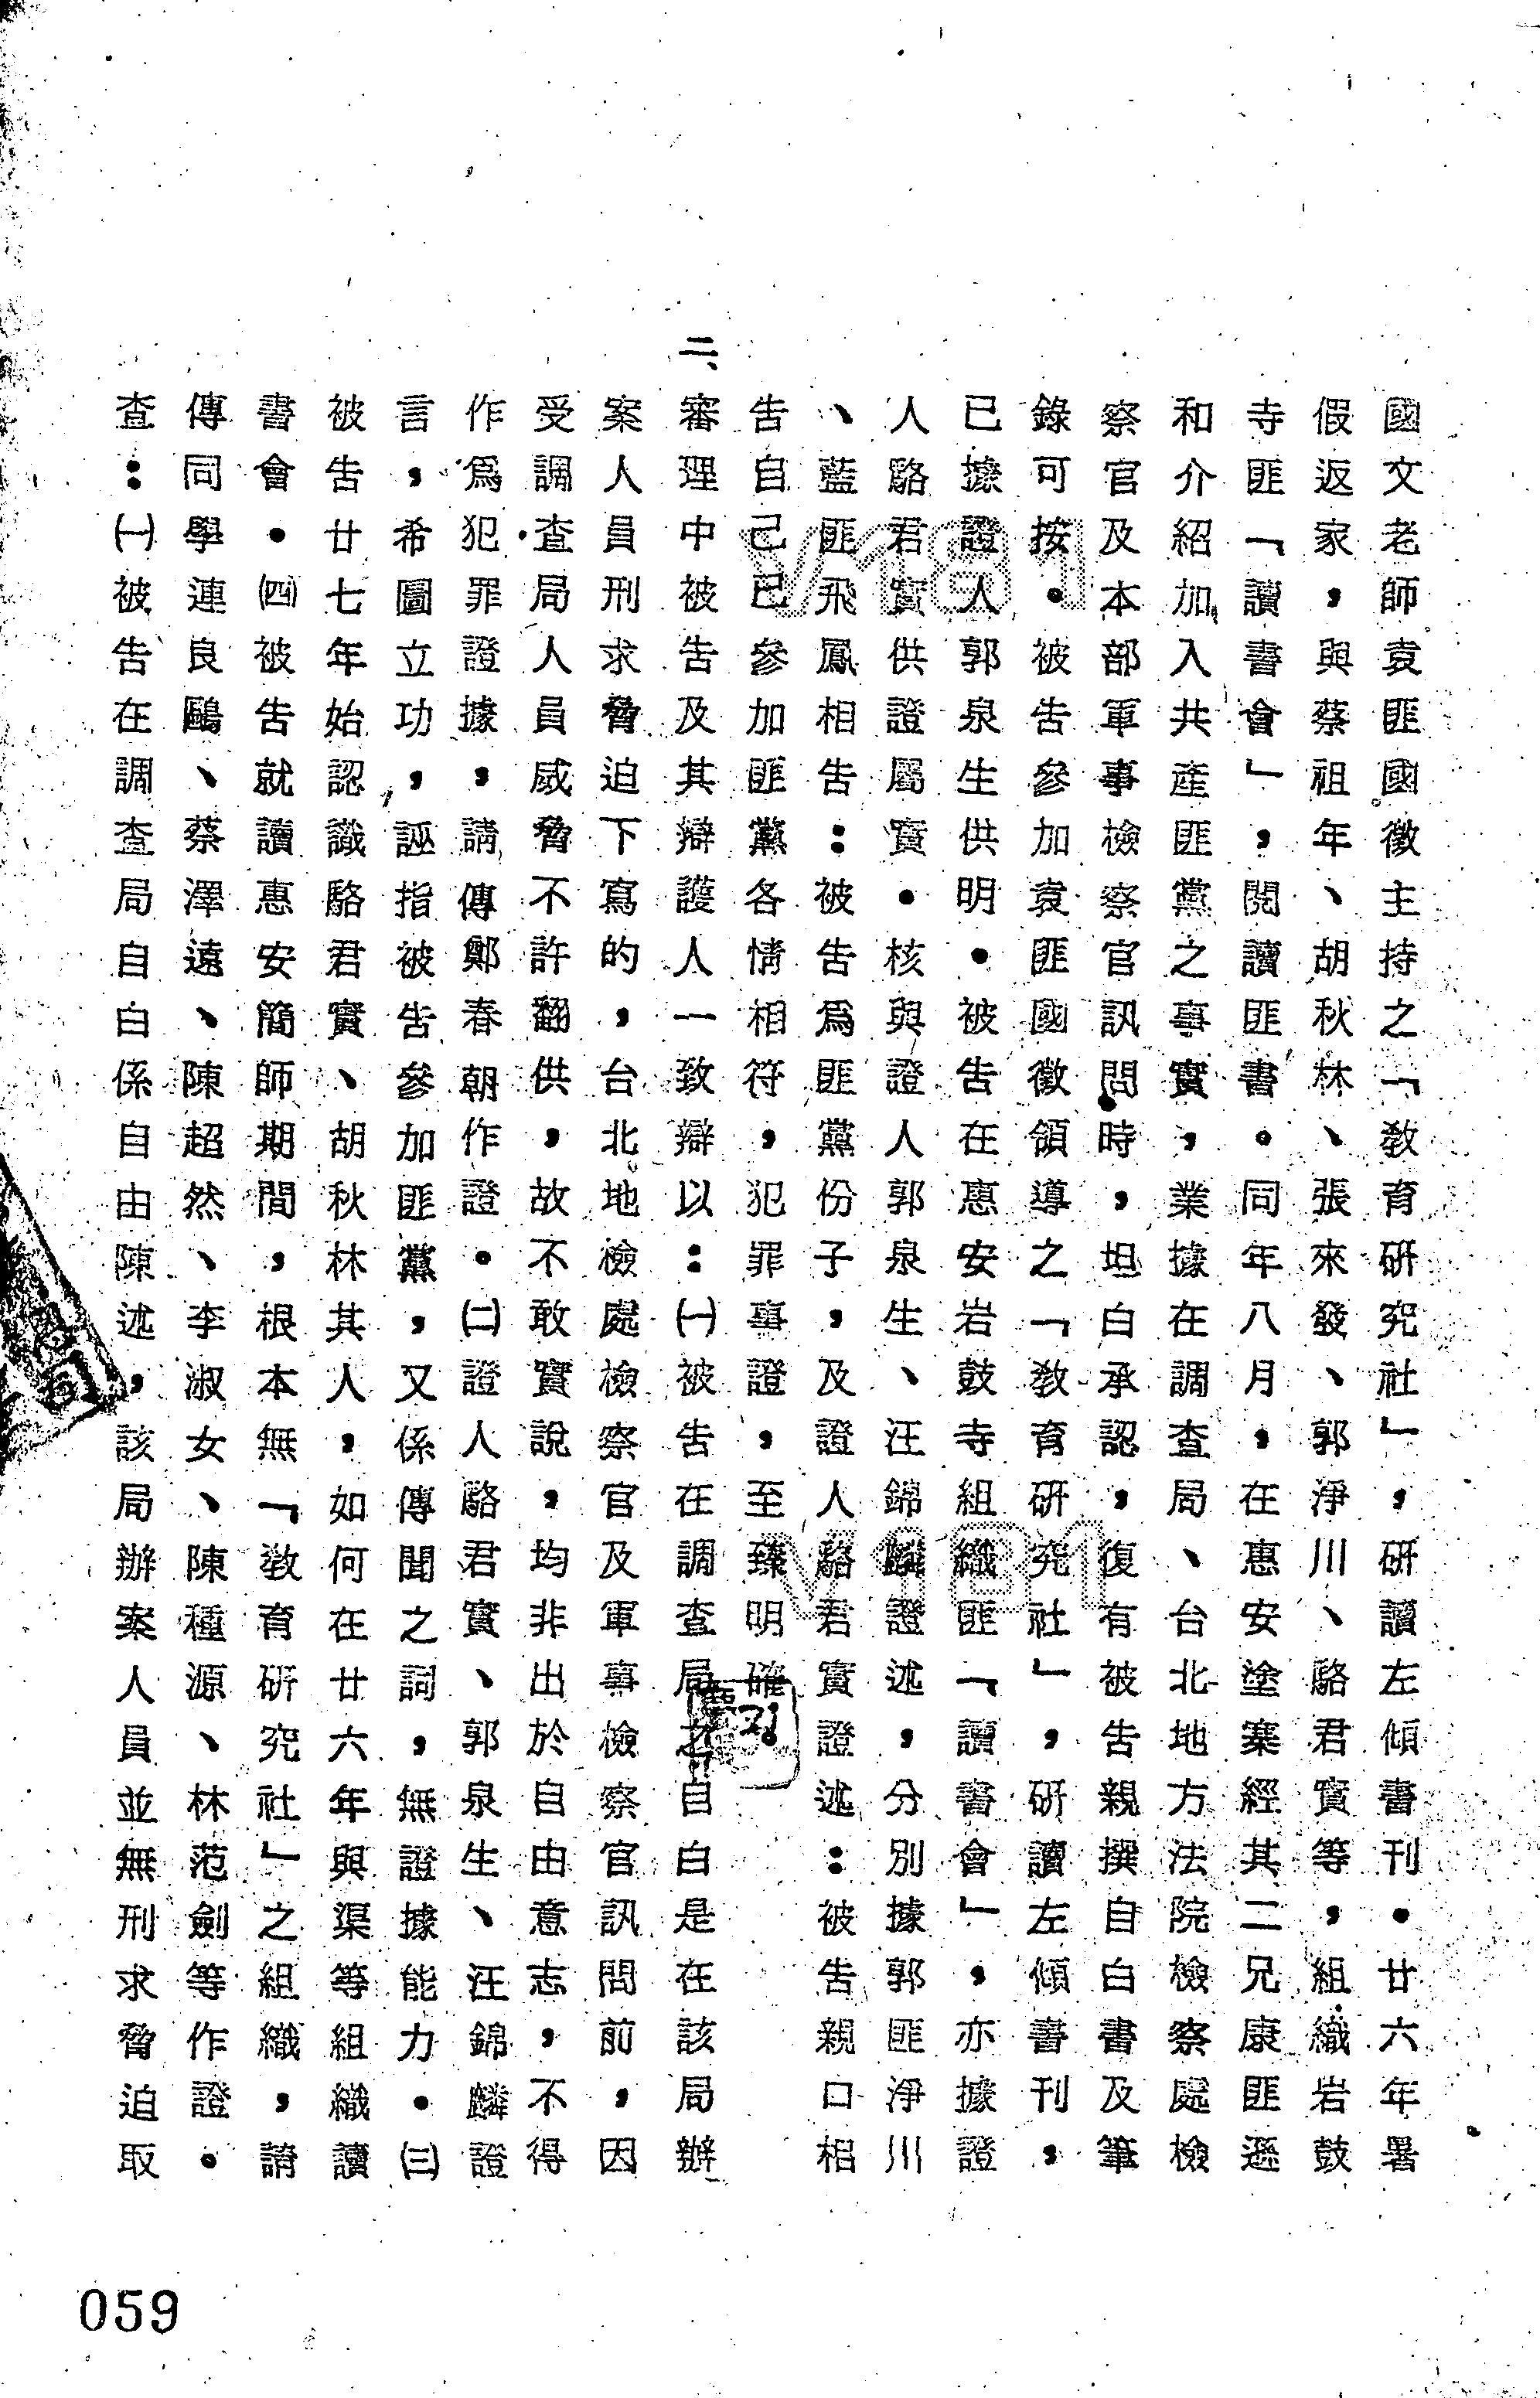 國文老師袁匪國徵主持之「教育研究社」，研讀左傾書刊。廿六年暑
假返家，與蔡祖年、胡秋林、張來發、郭淨川、駱君實等，組織岩鼓
寺匪「讀書會」，閱讀匪書。同年八月，在惠安塗寨經其二兄康匪遜
和介紹加入共產匪黨之事實，業據在調查局、台北地方法院檢察處檢
察官及本部軍事檢察官訊問時，坦白承認，復有被告親撰自白書及筆
錄可按。被告參加袁匪國徵領導之「教育研究社」，研讀左傾書刊，
已據證人郭泉生供明。被告在惠安岩鼓寺組織匪「讀書會」，亦據證
人駱君實供證屬實。核與證人郭泉生、汪錦麟證述，分別據郭匪淨川
、藍匪飛鳳相告：被告為匪黨份子，及證人駱君實證述：被告親口相
告自己已參加匪黨各情相符，犯罪事證，至臻明確。
二、審理中被告及其辯護人一致辯以：㈠被告在調查局之自白是在該局辦
案人員刑求脅迫下寫的，台北地檢處檢察官及軍事檢察官訊問前，因
受調查局人員威脅不許翻供，故不敢實說，均非出於自由意志，不得
作為犯罪證據，請傳鄭春朝作證。㈡證人駱君實、郭泉生、汪錦麟證
言，希圖立功，誣指被告參加匪黨，又係傳聞之詞，無證據能力。㈢
被告廿七年始認識駱君實、胡秋林其人，如何在廿六年與渠等組織讀
書會。㈣被告就讀惠安簡師期間，根本無「教育研究社」之組織，請
傳同學連良鷗、蔡澤遠、陳超然、李淑女、陳種源、林范劍等作證。
查：㈠被告在調查局自白係自由陳述，該局辦案人員並無刑求脅迫取
059
V181
V181